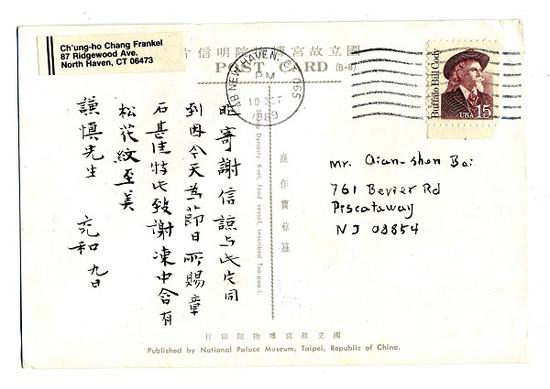 Ch'ung-ho Chang Frankel
87 Ridgewood Ave.
North Haven, CT 06473
國立故宮博物院明信片
POST CARD (B-8)
NEW HAVEN, CT 065
PM
10 OCT
1989
Buffalo Bill Cody
USA 15
昨寄謝信諒与此片同
到因今天為節日所賜章
石甚佳特此致謝凍中含有
松花紋至美
謙慎先生
充和 九日
Dynasty Kuei, food vessel, inscribed Tso-pao-i.
商 作寶彝簋
Mr. Qian-shen Bai
761 Bevier Rd
Piscataway
NJ 08854
國立故宮博物院印行
Published by National Palace Museum, Taipei, Republic of China.